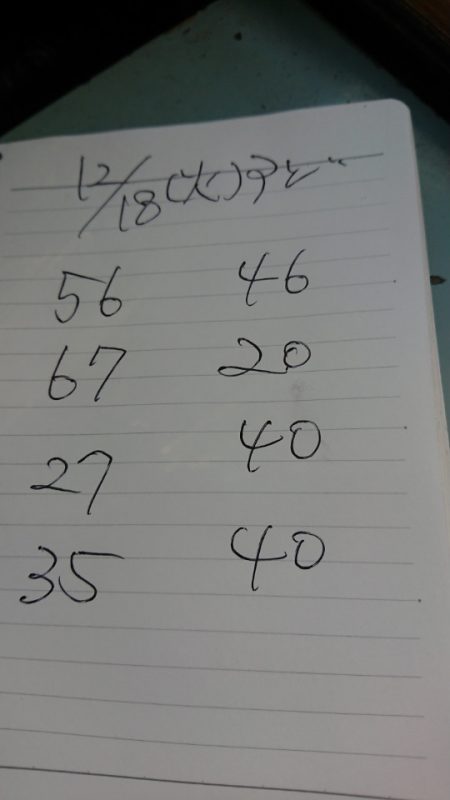 12/18(火)アビ
56 46
67 20
27 40
35 40